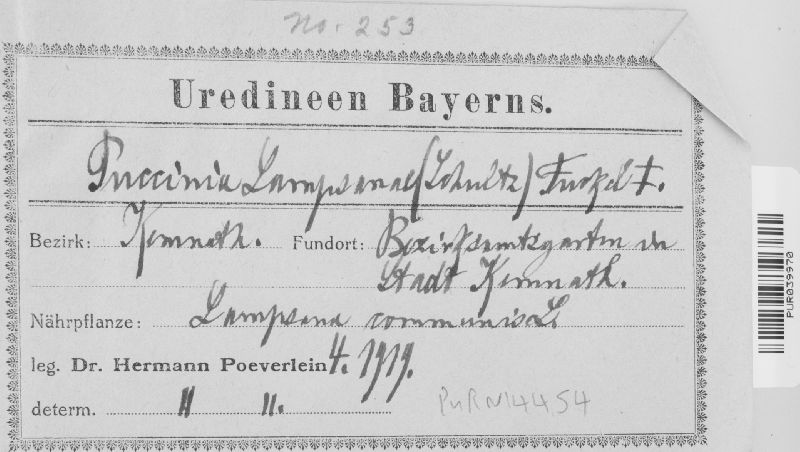 No. 253
Uredineen Bayerns.
Puccinia Lampsanae (Schultz) Fuckel
Bezirk: Kemnath. Fundort: Bezirksamtsgarten in
Stadt Kemnath.
Nährpflanze: Lampsana communis L.
leg. Dr. Hermann Poeverlein 4. 1919.
determ. " ".
PuRN14454
PUR039970